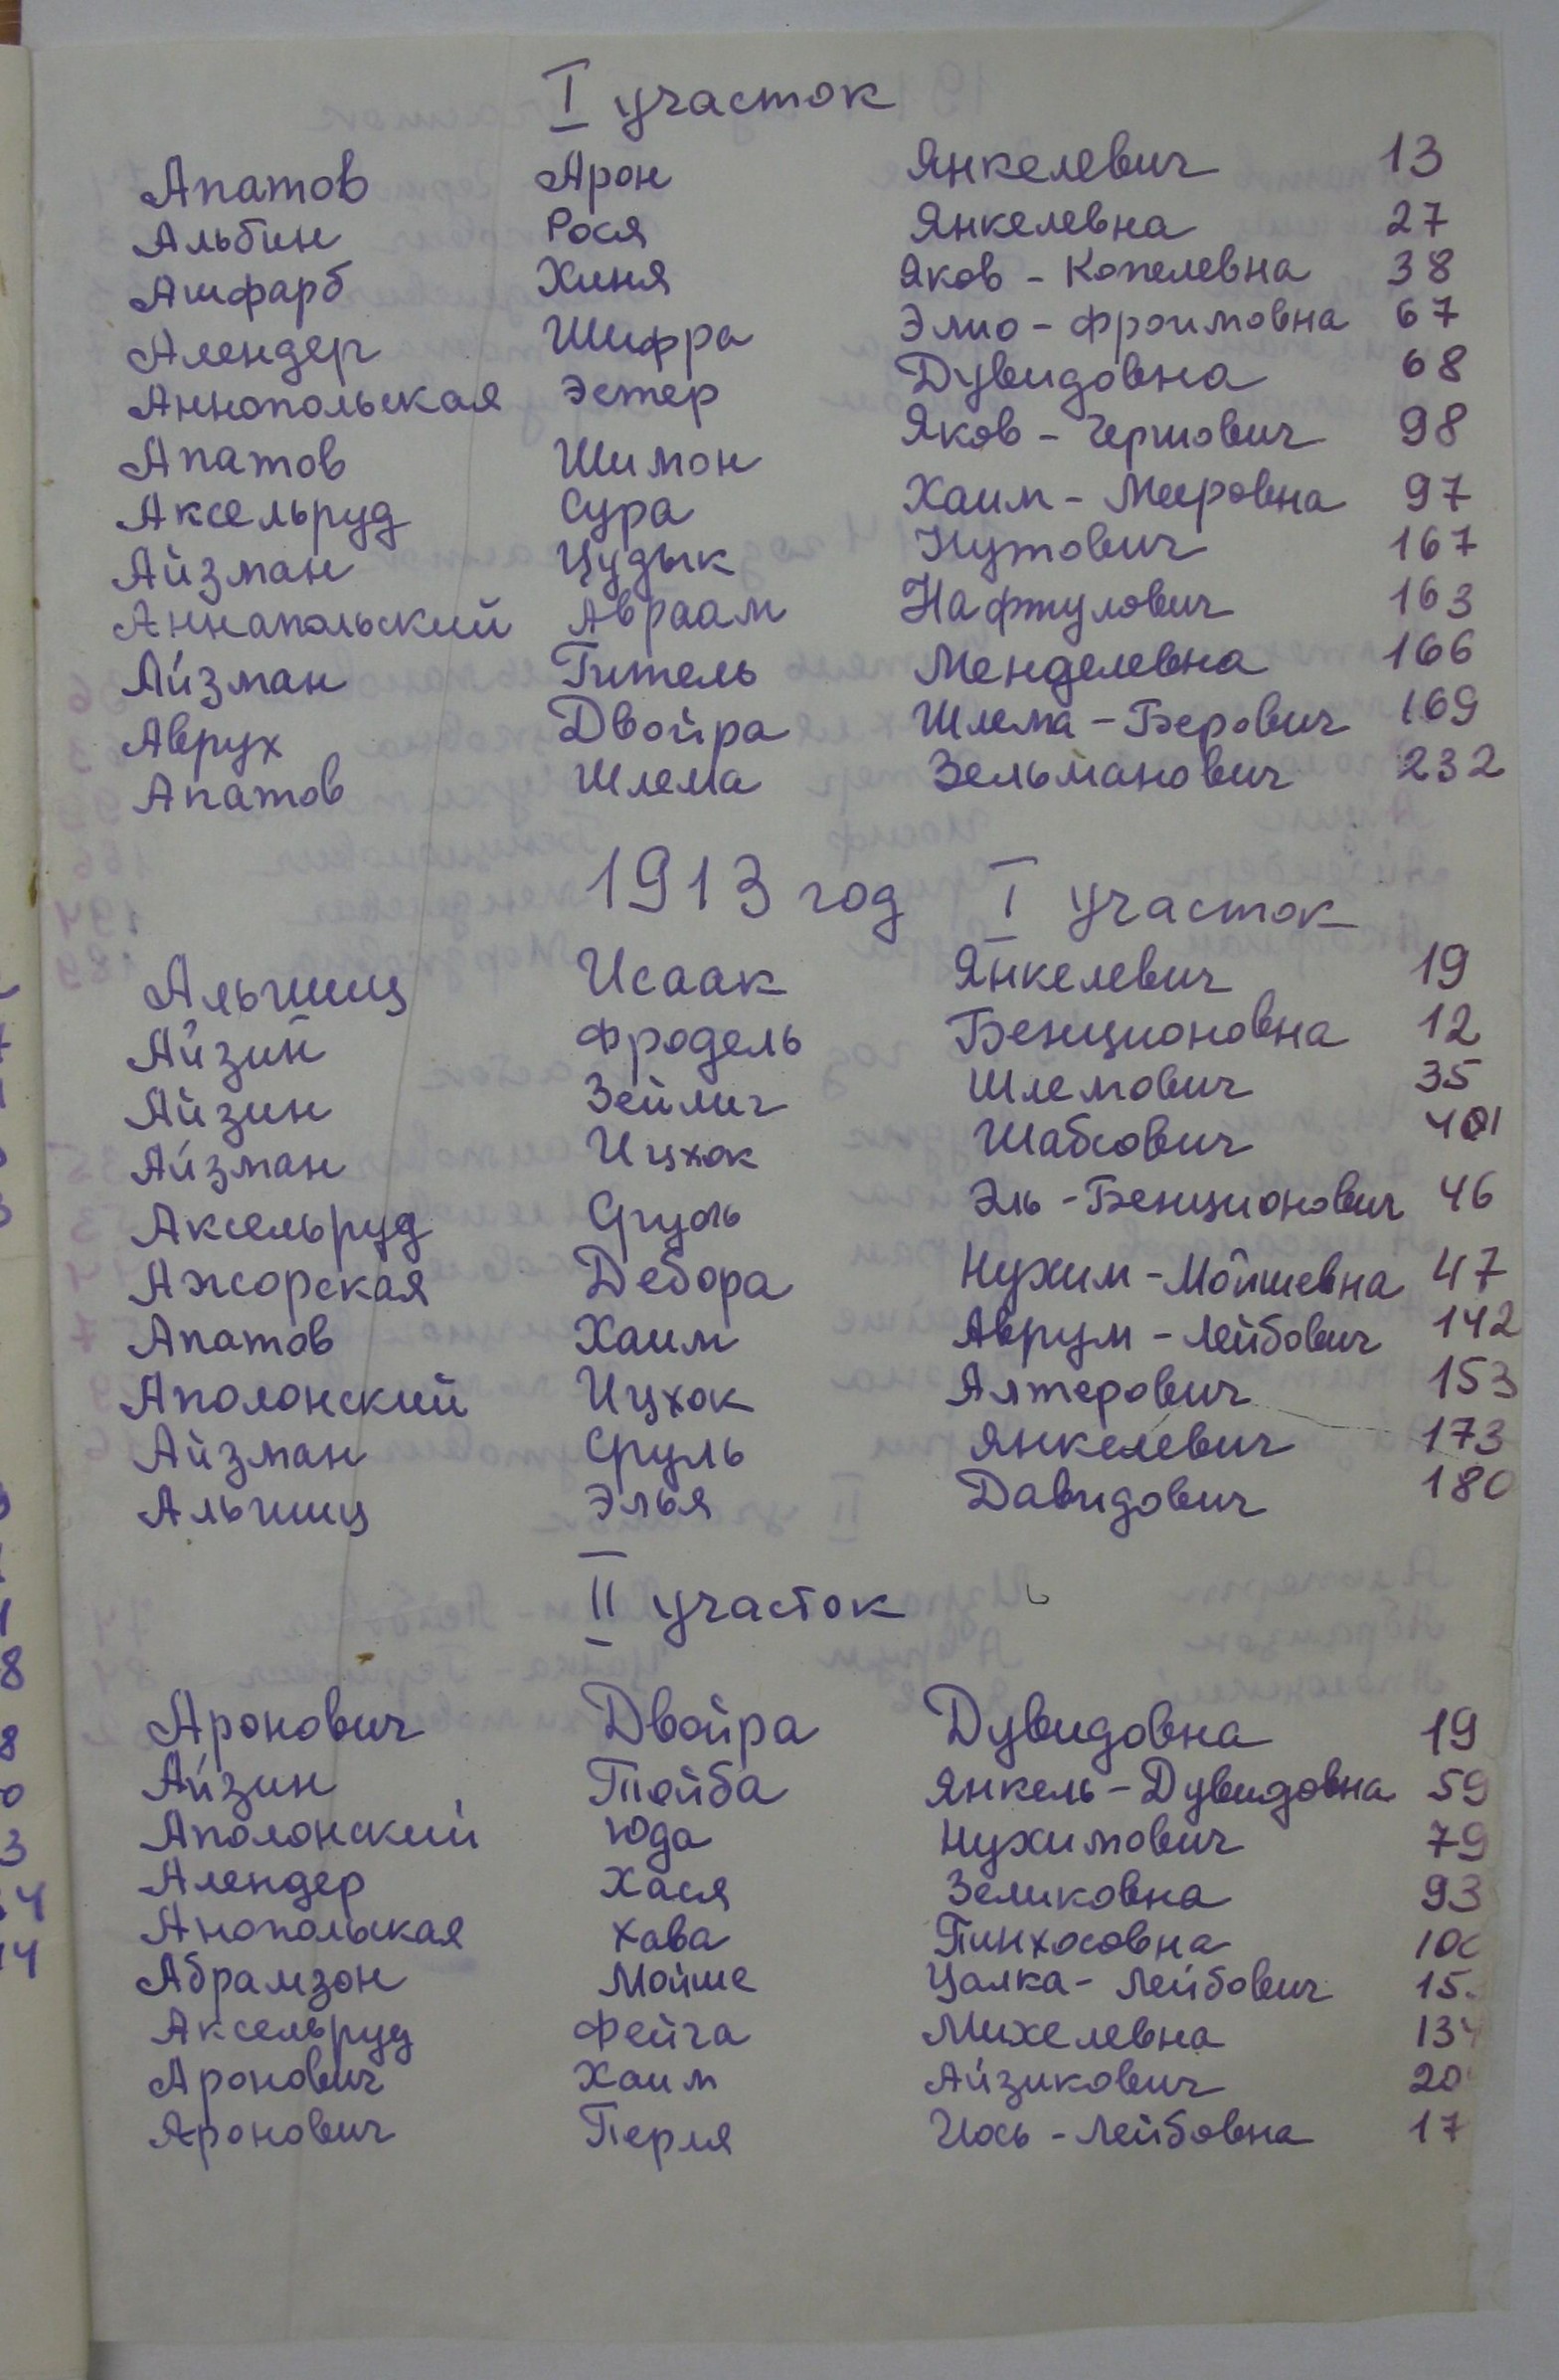 I участок
Апатов Арон Янкелевич 13
Альбин Рося Янкелевна 27
Ашфарб Хиня Яков - Копелевна 38
Алендер Шифра Элио - Фроимовна 67
Аннопольская Эстер Дувидовна 68
Апатов Шимон Яков - Гершович 98
Аксельруд Сура Хаим - Мееровна 97
Айзман Цудык Нутович 167
Аннапольский Авраам Нафтулович 163
Айзман Гитель Менделевна 166
Аврух Двойра Шлема - Берович 169
Апатов Шлема Зельманович 232
1913 год I участок
Альшиц Исаак Янкелевич 19
Айзин Фродель Бенционовна 12
Айзин Зейлиг Шлемович 35
Айзман Ицхок Шабсович
Аксельруд Сруль Эль - Бенционович 46
Ажорская Дебора Нухим - Мойшевна 47
Апатов Хаим Аврум - Лейбович 142
Аполонский Ицхок Алтерович 153
Айзман Сруль Янкелевич 173
Альшиц Элья Давидович 180
II участок
Аронович Двойра Дувидовна 19
Айзин Тойба Янкель - Дувидовна 59
Аполонский Юда Нухимович 79
Алендер Хася Зеликовна 93
Анопольская Хава Пинхосовна
Абрамзон Мойше Цалка - Лейбович
Аксельруд Фейга Михелевна 134
Аронович Хаим Айзикович
Аронович Перля Иось - Лейбовна 17